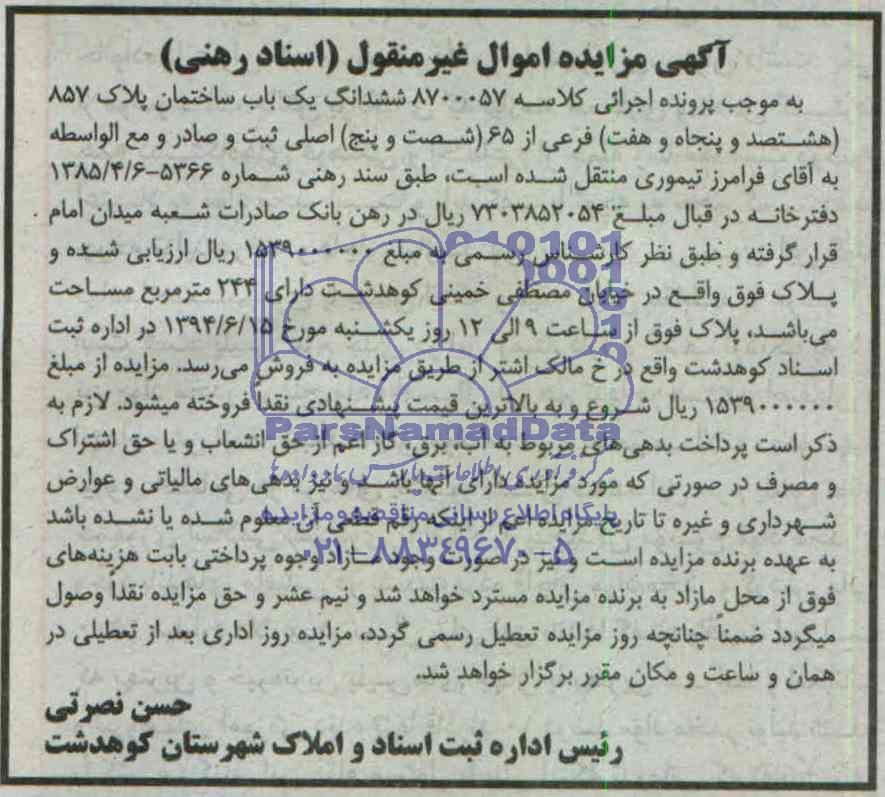 آگهی مزایده اموال غیرمنقول (اسناد رهنی)
به موجب پرونده اجرائی کلاسه ۸۷۰۰۰۵۷ ششدانگ یک باب ساختمان پلاک ۸۵۷
(هشتصد و پنجاه و هفت) فرعی از ۶۵ (شصت و پنج) اصلی ثبت و صادر و مع الواسطه
به آقای فرامرز تیموری منتقل شده است، طبق سند رهنی شماره ۵۳۶۶-۱۳۸۵/۴/۶
دفترخانه در قبال مبلغ ۷۳۰۳۸۵۲۰۵۴ ریال در رهن بانک صادرات شعبه میدان امام
قرار گرفته و طبق نظر کارشناس رسمی به مبلغ ۱۵۳۹۰۰۰۰۰۰ ریال ارزیابی شده و
پلاک فوق واقع در خیابان مصطفی خمینی کوهدشت دارای ۲۴۴ مترمربع مساحت
می‌باشد، پلاک فوق از ساعت ۹ الی ۱۲ روز یکشنبه مورخ ۱۳۹۴/۶/۱۵ در اداره ثبت
اسناد کوهدشت واقع در خ مالک اشتر از طریق مزایده به فروش می‌رسد. مزایده از مبلغ
۱۵۳۹۰۰۰۰۰۰ ریال شروع و به بالاترین قیمت پیشنهادی نقداً فروخته میشود. لازم به
ذکر است پرداخت بدهی‌های مربوط به آب، برق، گاز اعم از حق انشعاب و یا حق اشتراک
و مصرف در صورتی که مورد مزایده دارای آنها باشد و نیز بدهی‌های مالیاتی و عوارض
شهرداری و غیره تا تاریخ مزایده اعم از اینکه رقم قطعی آن معلوم شده یا نشده باشد
به عهده برنده مزایده است و نیز در صورت وجود مازاد وجوه پرداختی بابت هزینه‌های
فوق از محل مازاد به برنده مزایده مسترد خواهد شد و نیم عشر و حق مزایده نقداً وصول
میگردد ضمناً چنانچه روز مزایده تعطیل رسمی گردد، مزایده روز اداری بعد از تعطیلی در
همان و ساعت و مکان مقرر برگزار خواهد شد.
حسن نصرتی
رئیس اداره ثبت اسناد و املاک شهرستان کوهدشت
ParsNamadData
مرکز فرآوری اطلاعات پارس نماد داده‌ها
پایگاه اطلاع رسانی مناقصه و مزایده
۰۲۱-۸۸۳۴۹۶۷۰-۵